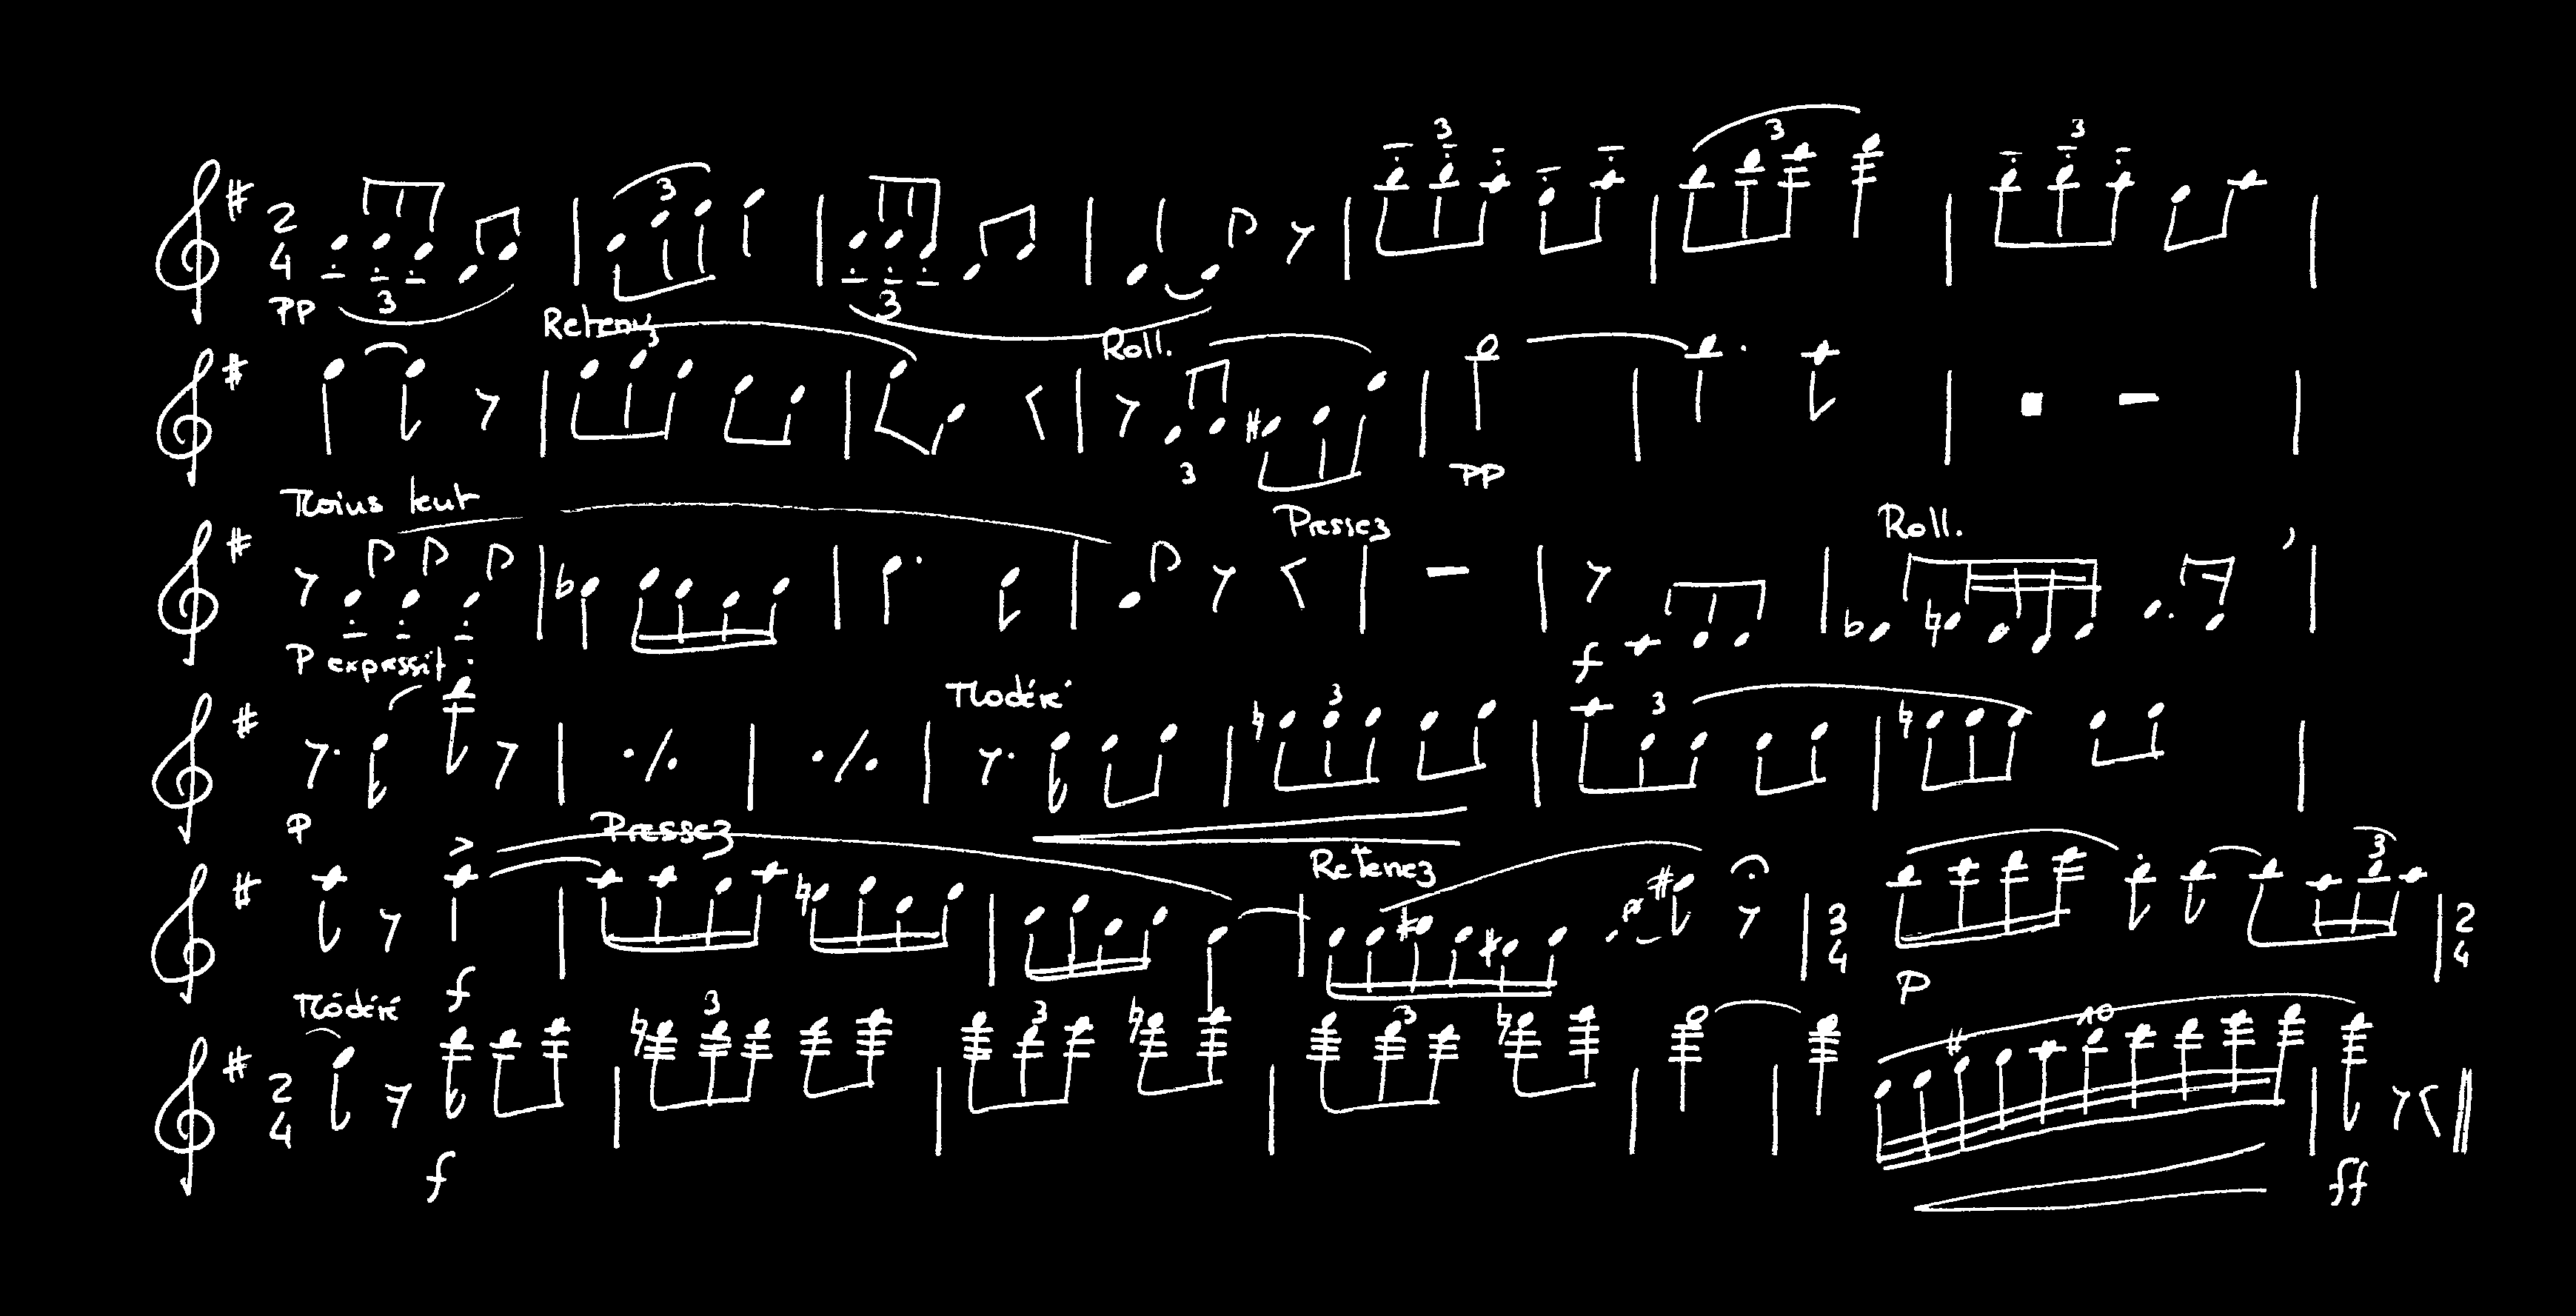 3 3
3 3
2
4
PP 3 3
Retenu 3 Roll.
3 PP
Moins lent Pressez Roll.
P expressif f
Modéré 3 3
P Pressez Retenez 3
3
4
2
4
f P
Modéré 3 3 3 10
2
4
f ff